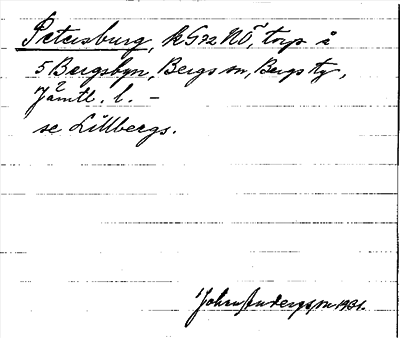 Petersburg, k G 72 NÖ, torp å
5 Bergsbyn, Bergs sn, Bergs tg,
Jämtl. l. –
se Lillbergs.
John Anderson 1931.